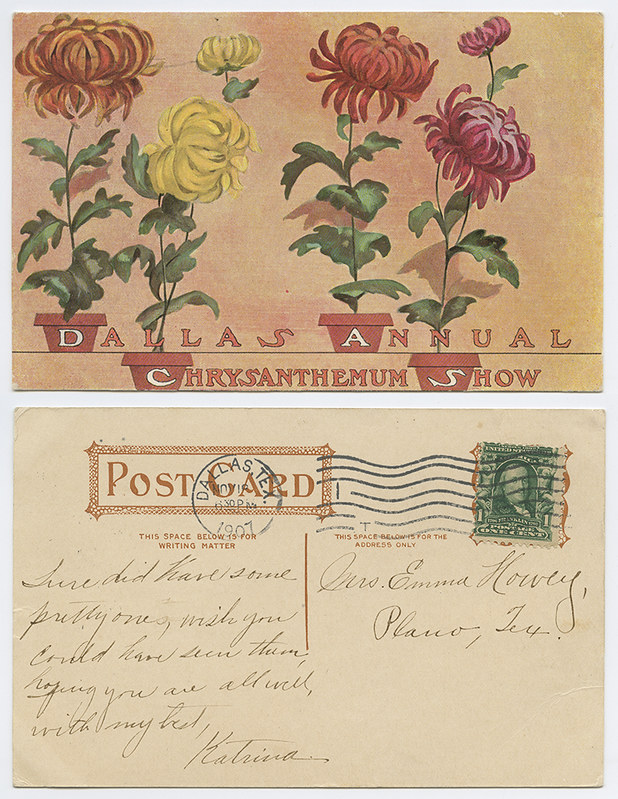 DALLAS ANNUAL
CHRYSANTHEMUM SHOW
POST CARD
DALLAS, TEX.
NOV 12
1907
UNITED STATES
FRANKLIN
POSTAGE
ONE CENT
THIS SPACE BELOW IS FOR
WRITING MATTER
THIS SPACE BELOW IS FOR THE
ADDRESS ONLY
Sure did have some
pretty ones, wish you
could have seen them,
hoping you are all well,
with my best,
Katrina
Mrs. Emma Howey,
Plano, Tex.